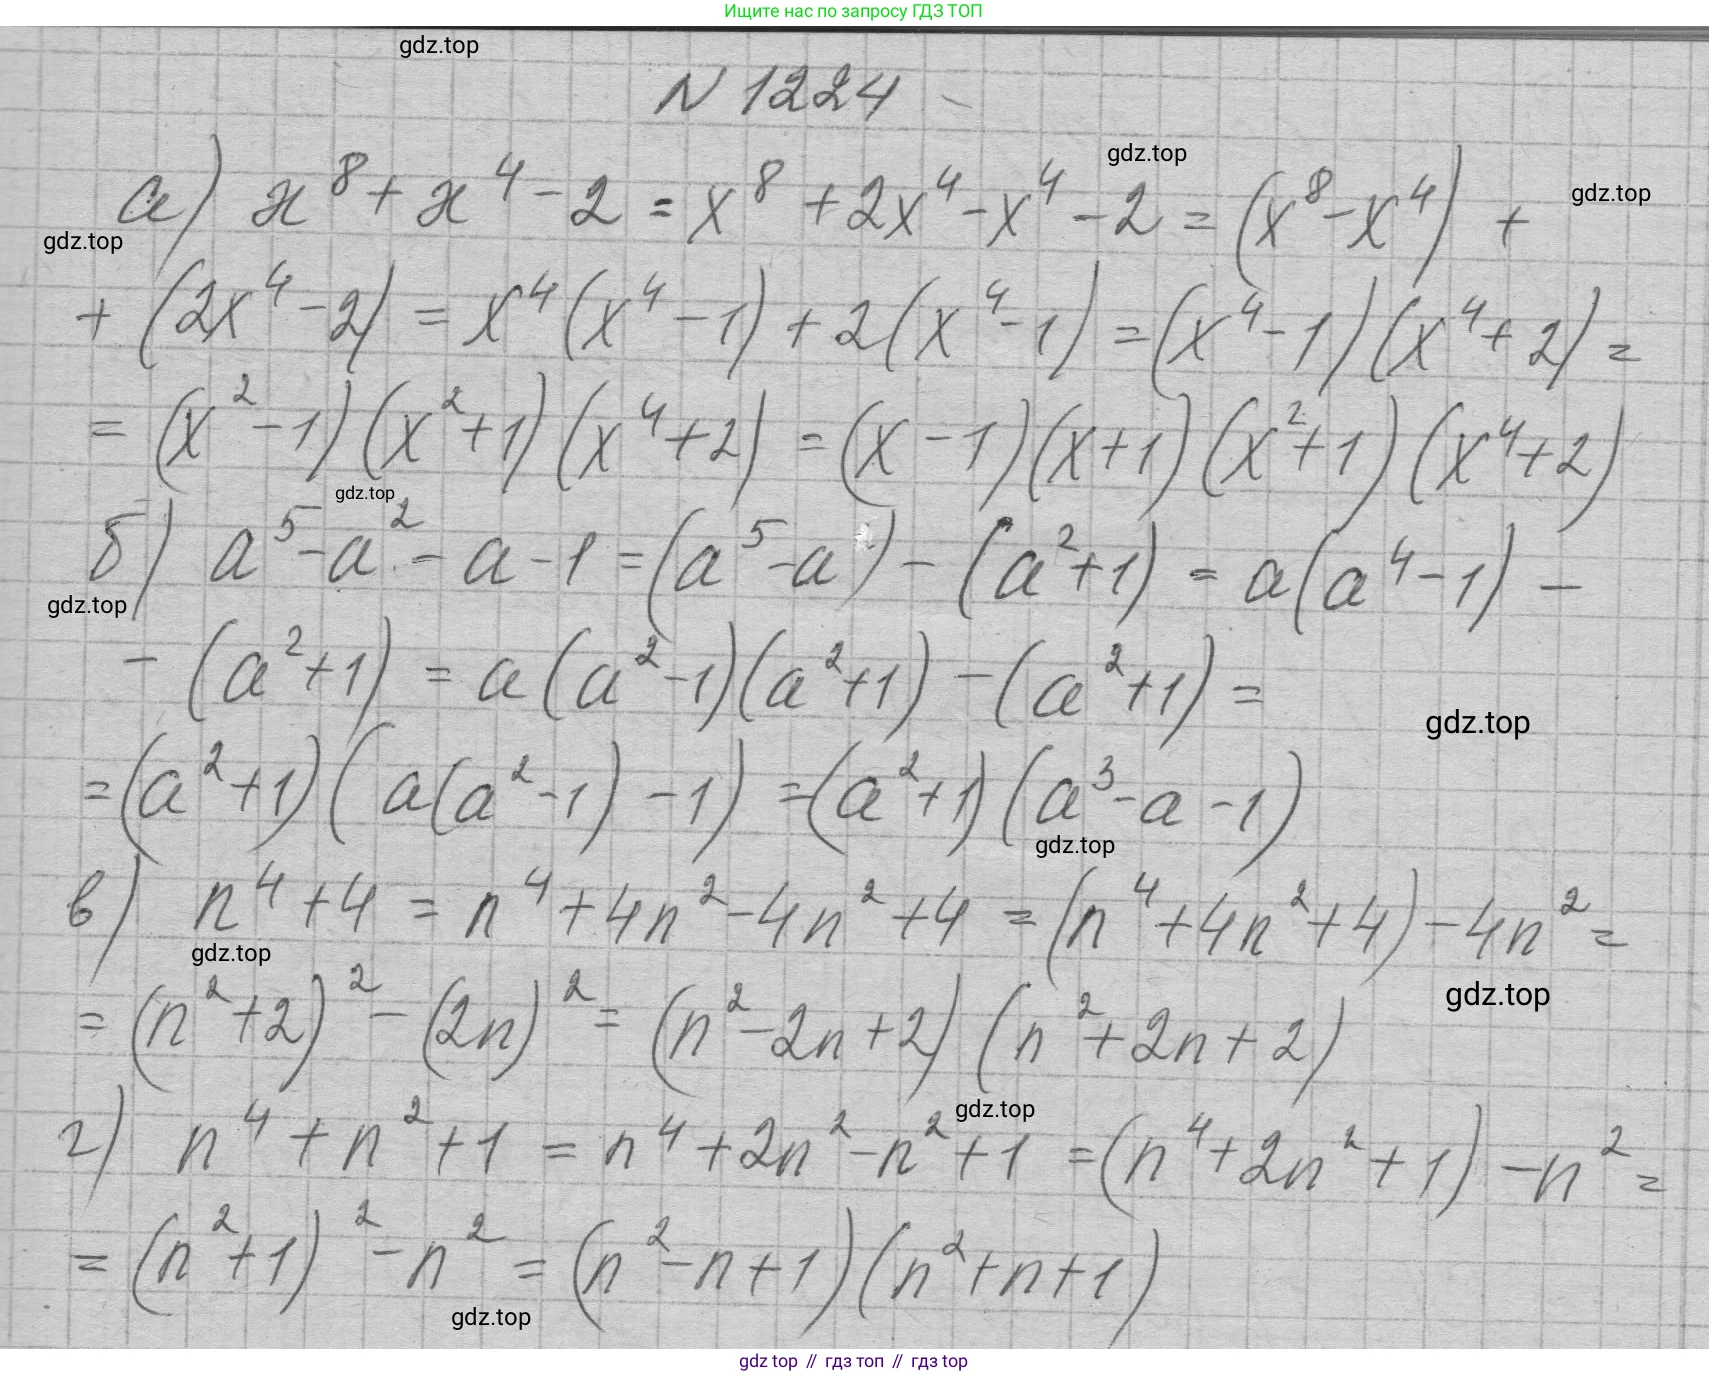 Ищите нас по запросу ГДЗ ТОП
gdz.top
N 1224
gdz.top
gdz.top
а) x⁸ + x⁴ - 2 = x⁸ + 2x⁴ - x⁴ - 2 = (x⁸ - x⁴) +
gdz.top
+ (2x⁴ - 2) = x⁴(x⁴ - 1) + 2(x⁴ - 1) = (x⁴ - 1)(x⁴ + 2) =
= (x² - 1)(x² + 1)(x⁴ + 2) = (x - 1)(x + 1)(x² + 1)(x⁴ + 2)
gdz.top
б) a⁵ - a² - a - 1 = (a⁵ - a) - (a² + 1) = a(a⁴ - 1) -
gdz.top
- (a² + 1) = a(a² - 1)(a² + 1) - (a² + 1) =
gdz.top
= (a² + 1)(a(a² - 1) - 1) = (a² + 1)(a³ - a - 1)
gdz.top
в) n⁴ + 4 = n⁴ + 4n² - 4n² + 4 = (n⁴ + 4n² + 4) - 4n² =
gdz.top
gdz.top
= (n² + 2)² - (2n)² = (n² - 2n + 2)(n² + 2n + 2)
gdz.top
г) n⁴ + n² + 1 = n⁴ + 2n² - n² + 1 = (n⁴ + 2n² + 1) - n² =
= (n² + 1)² - n² = (n² - n + 1)(n² + n + 1)
gdz.top
gdz top // гдз топ // gdz.top